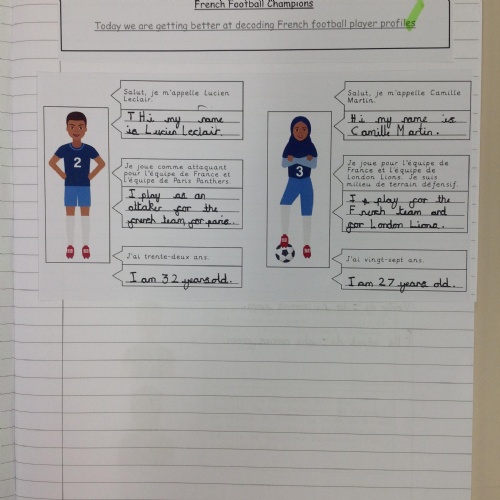 French Football Champions
Today we are getting better at decoding French football player profiles
Salut, je m'appelle Lucien
Leclair.
Hi my name
is Lucien Leclair.
2
Je joue comme attaquant
pour l'équipe de France et
l'équipe de Paris Panthers.
I play as an
attaker for the
french team, for paris..
J'ai trente-deux ans.
I am 32 years old.
Salut, je m'appelle Camille
Martin.
Hi my name is
Camille Martin.
3
Je joue pour l'équipe de
France et l'équipe de
London Lions. Je suis
milieu de terrain défensif.
I play for the
French team and
for London Lions.
J'ai vingt-sept ans.
I am 27 years old.